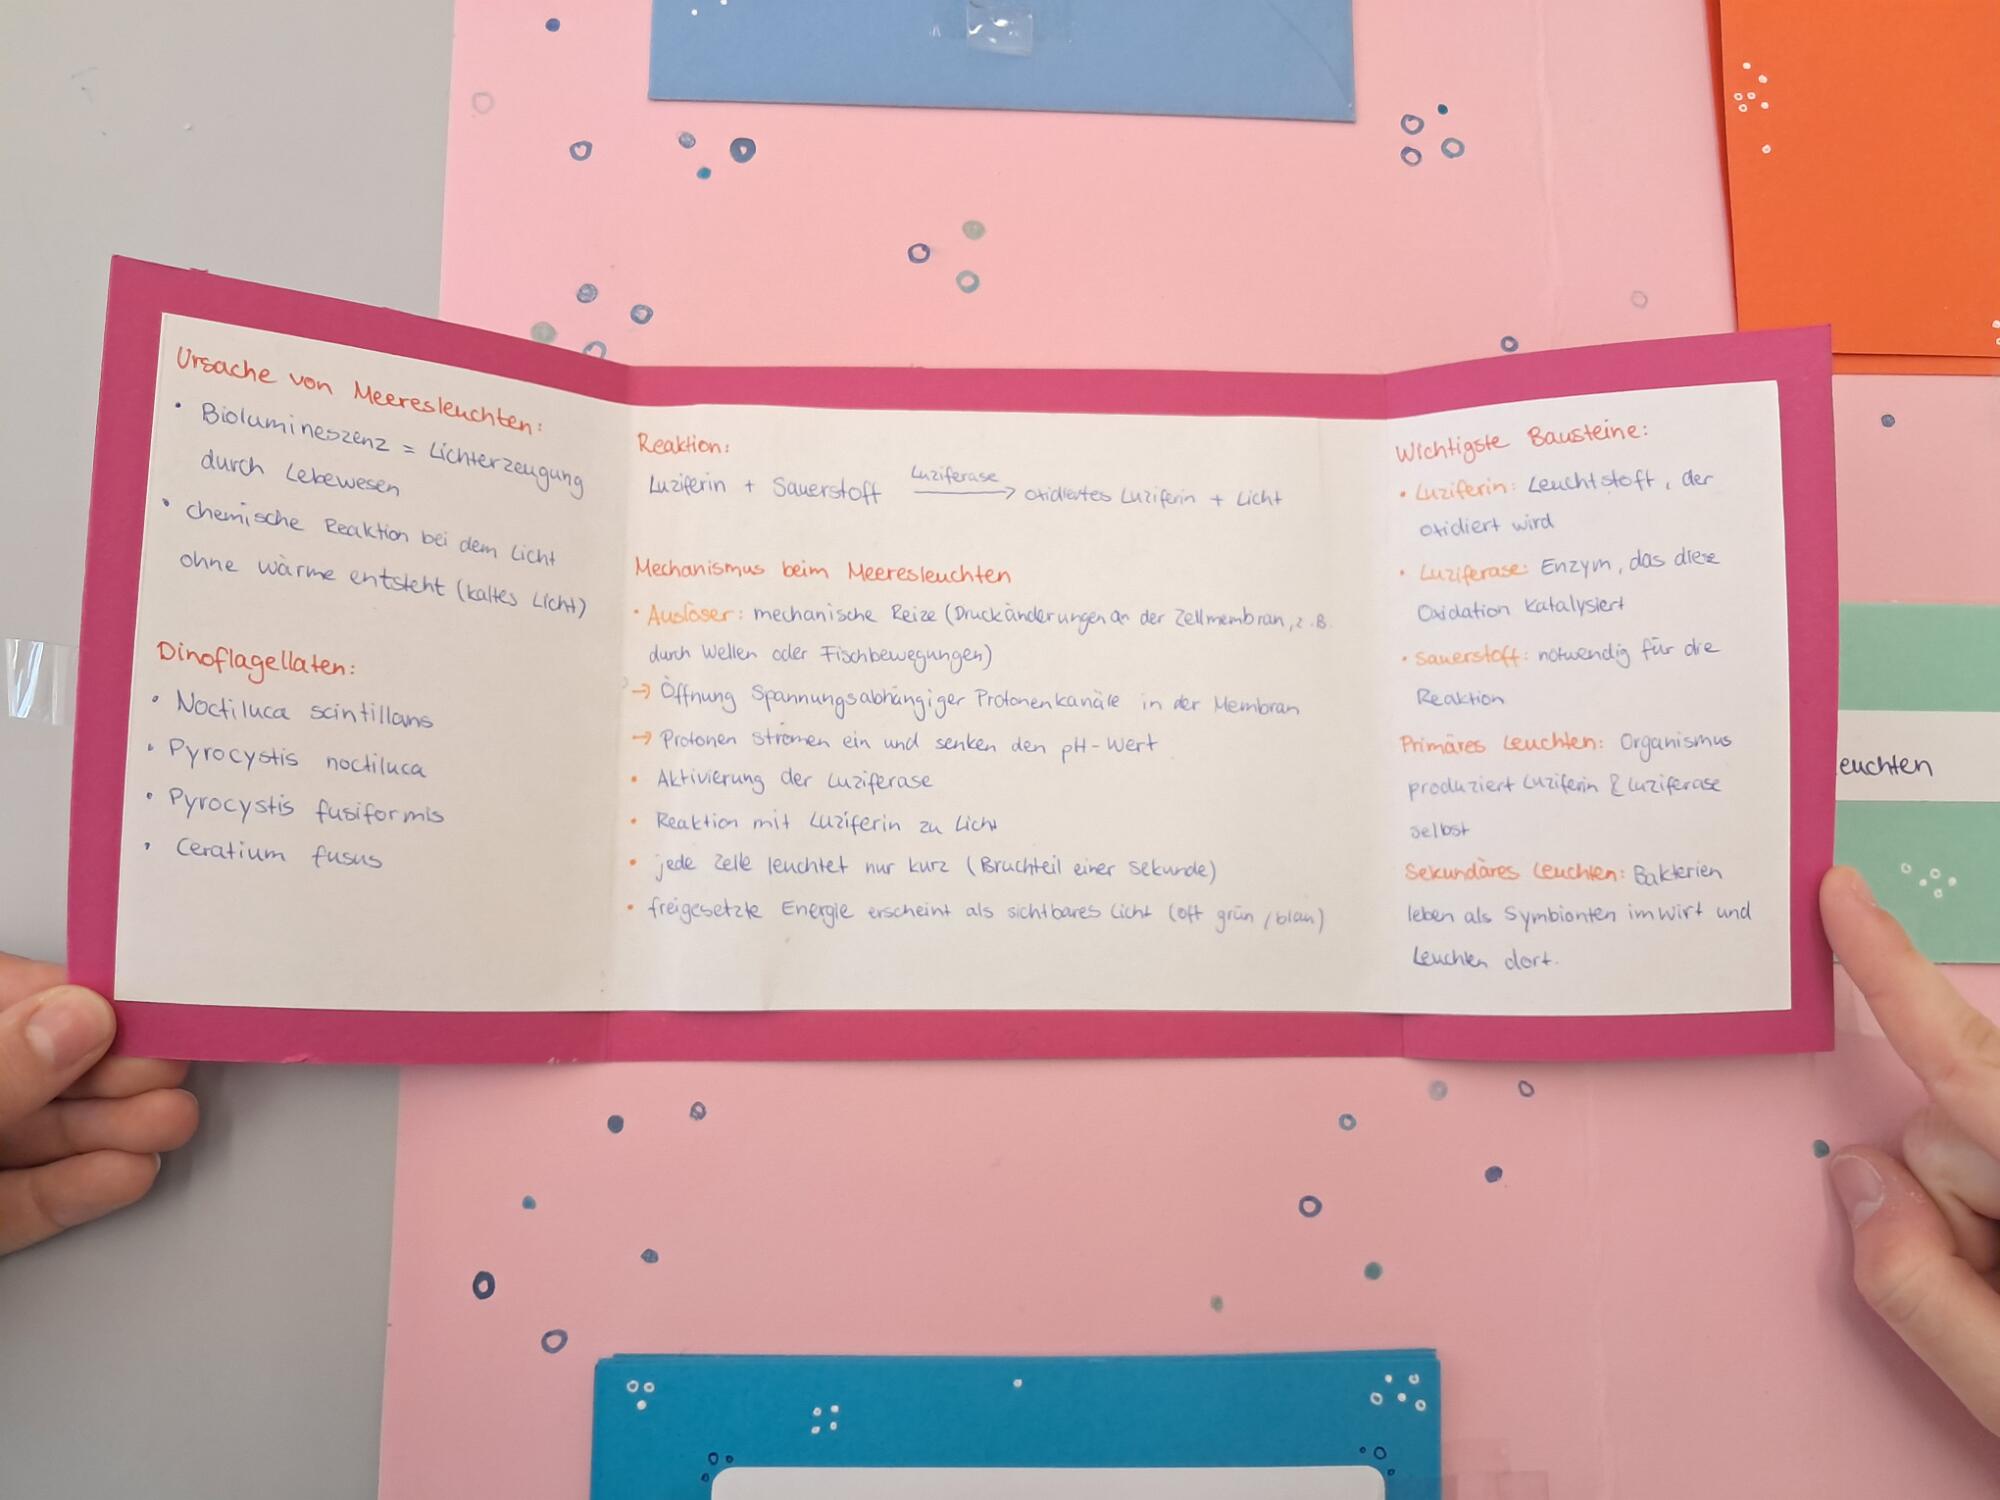 Ursache von Meeresleuchten:
• Biolumineszenz = Lichterzeugung
durch Lebewesen
• chemische Reaktion bei dem Licht
ohne wärme entsteht (kaltes Licht)
Dinoflagellaten:
• Noctiluca scintillans
• Pyrocystis noctiluca
• Pyrocystis fusiformis
• Ceratium fusus
Reaktion:
Luziferase
Luziferin + Sauerstoff → oxidiertes Luziferin + Licht
Mechanismus beim Meeresleuchten
• Auslöser: mechanische Reize (Druckänderungen an der Zellmembran, z.B.
durch Wellen oder Fischbewegungen)
→ Öffnung Spannungsabhängiger Protonenkanäle in der Membran
→ Protonen strömen ein und senken den pH-Wert
• Aktivierung der Luziferase
• Reaktion mit Luziferin zu Licht
• jede Zelle leuchtet nur kurz (Bruchteil einer Sekunde)
• freigesetzte Energie erscheint als sichtbares Licht (oft grün/blau)
Wichtigste Bausteine:
• Luziferin: Leuchtstoff, der
oxidiert wird
• Luziferase: Enzym, das diese
Oxidation katalysiert
• Sauerstoff: notwendig für die
Reaktion
Primäres Leuchten: Organismus
produziert Luziferin & Luziferase
selbst
Sekundäres Leuchten: Bakterien
leben als Symbionten im Wirt und
Leuchten dort.
euchten